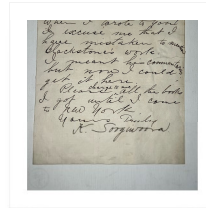 when I wrote a govt
I excuse me that I
have mistaken to make
Blackstone's work.
I meant his commentaries
but now I could
get it here.
Please charge me all the books
I got until I come
to New York
Yours Truly
K